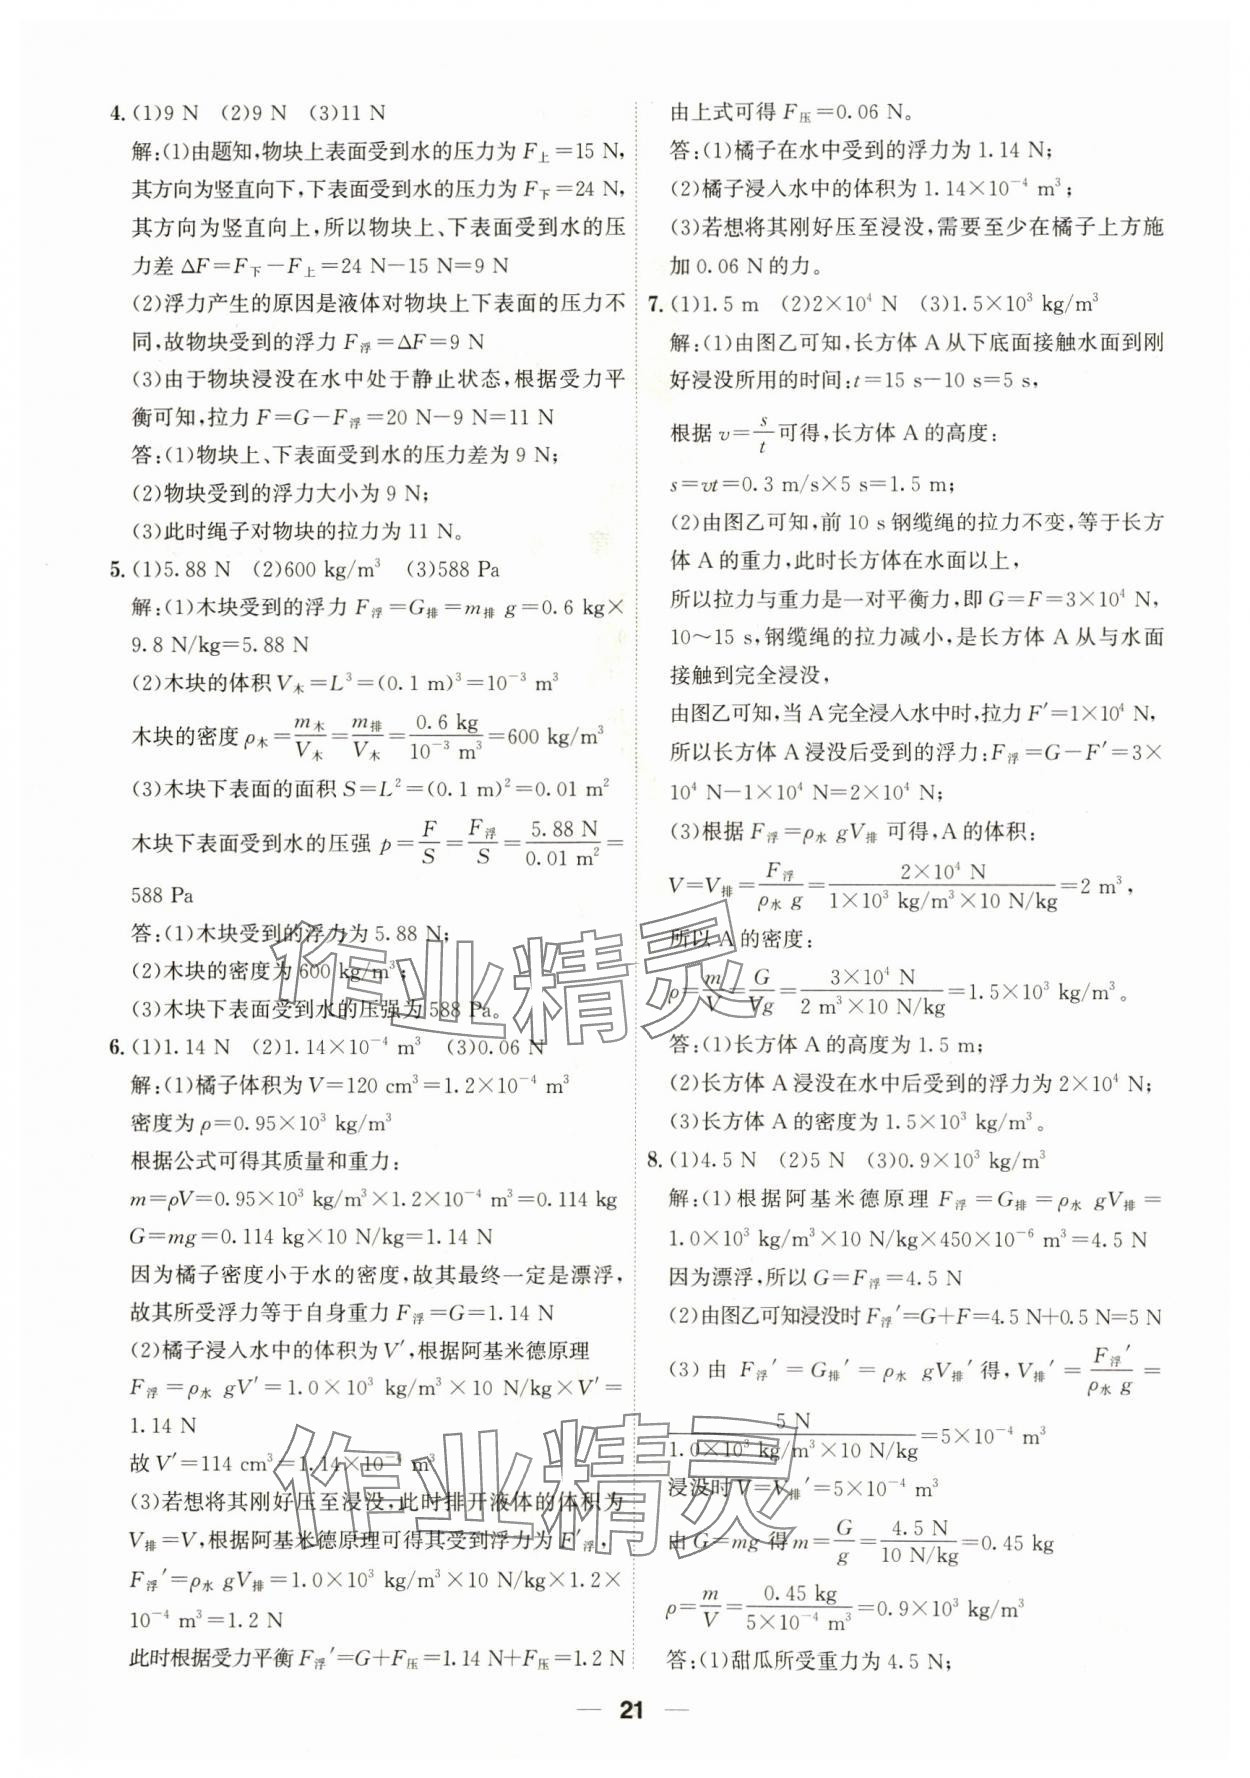 4. (1)9 N (2)9 N (3)11 N
解:(1)由题知,物块上表面受到水的压力为 F上=15 N,
其方向为竖直向下,下表面受到水的压力为 F下=24 N,
其方向为竖直向上,所以物块上、下表面受到水的压
力差 ΔF=F下-F上=24 N-15 N=9 N
(2)浮力产生的原因是液体对物块上下表面的压力不
同,故物块受到的浮力 F浮=ΔF=9 N
(3)由于物块浸没在水中处于静止状态,根据受力平
衡可知,拉力 F=G-F浮=20 N-9 N=11 N
答:(1)物块上、下表面受到水的压力差为 9 N;
(2)物块受到的浮力大小为 9 N;
(3)此时绳子对物块的拉力为 11 N。
5. (1)5.88 N (2)600 kg/m³ (3)588 Pa
解:(1)木块受到的浮力 F浮=G排=m排 g=0.6 kg×
9.8 N/kg=5.88 N
(2)木块的体积 V木=L³=(0.1 m)³=10⁻³ m³
木块的密度 ρ木=m木/V木=m排/V木=0.6 kg/10⁻³ m³=600 kg/m³
(3)木块下表面的面积 S=L²=(0.1 m)²=0.01 m²
木块下表面受到水的压强 p=F/S=F浮/S=5.88 N/0.01 m²=
588 Pa
答:(1)木块受到的浮力为 5.88 N;
(2)木块的密度为 600 kg/m³;
(3)木块下表面受到水的压强为 588 Pa。
6. (1)1.14 N (2)1.14×10⁻⁴ m³ (3)0.06 N
解:(1)橘子体积为 V=120 cm³=1.2×10⁻⁴ m³
密度为 ρ=0.95×10³ kg/m³
根据公式可得其质量和重力:
m=ρV=0.95×10³ kg/m³×1.2×10⁻⁴ m³=0.114 kg
G=mg=0.114 kg×10 N/kg=1.14 N
因为橘子密度小于水的密度,故其最终一定是漂浮,
故其所受浮力等于自身重力 F浮=G=1.14 N
(2)橘子浸入水中的体积为 V′,根据阿基米德原理
F浮=ρ水 gV′=1.0×10³ kg/m³×10 N/kg×V′=
1.14 N
故 V′=114 cm³=1.14×10⁻⁴ m³
(3)若想将其刚好压至浸没,此时排开液体的体积为
V排=V,根据阿基米德原理可得其受到浮力为 F′浮,
F浮′=ρ水 gV排=1.0×10³ kg/m³×10 N/kg×1.2×
10⁻⁴ m³=1.2 N
此时根据受力平衡 F浮′=G+F压=1.14 N+F压=1.2 N
由上式可得 F压=0.06 N。
答:(1)橘子在水中受到的浮力为 1.14 N;
(2)橘子浸入水中的体积为 1.14×10⁻⁴ m³;
(3)若想将其刚好压至浸没,需要至少在橘子上方施
加 0.06 N 的力。
7. (1)1.5 m (2)2×10⁴ N (3)1.5×10³ kg/m³
解:(1)由图乙可知,长方体 A 从下底面接触水面到刚
好浸没所用的时间:t=15 s-10 s=5 s,
根据 v=s/t可得,长方体 A 的高度:
s=vt=0.3 m/s×5 s=1.5 m;
(2)由图乙可知,前 10 s 钢缆绳的拉力不变,等于长方
体 A 的重力,此时长方体在水面以上,
所以拉力与重力是一对平衡力,即 G=F=3×10⁴ N,
10~15 s,钢缆绳的拉力减小,是长方体 A 从与水面
接触到完全浸没,
由图乙可知,当 A 完全浸入水中时,拉力 F′=1×10⁴ N,
所以长方体 A 浸没后受到的浮力:F浮=G-F′=3×
10⁴ N-1×10⁴ N=2×10⁴ N;
(3)根据 F浮=ρ水 gV排 可得,A 的体积:
V=V排=F浮/ρ水 g=2×10⁴ N/1×10³ kg/m³×10 N/kg=2 m³,
所以 A 的密度:
ρ=m/V=G/Vg=3×10⁴ N/2 m³×10 N/kg=1.5×10³ kg/m³。
答:(1)长方体 A 的高度为 1.5 m;
(2)长方体 A 浸没在水中后受到的浮力为 2×10⁴ N;
(3)长方体 A 的密度为 1.5×10³ kg/m³。
8. (1)4.5 N (2)5 N (3)0.9×10³ kg/m³
解:(1)根据阿基米德原理 F浮=G排=ρ水 gV排=
1.0×10³ kg/m³×10 N/kg×450×10⁻⁶ m³=4.5 N
因为漂浮,所以 G=F浮=4.5 N
(2)由图乙可知浸没时 F浮′=G+F=4.5 N+0.5 N=5 N
(3)由 F浮′=G排′=ρ水 gV排′得,V排′=F浮′/ρ水 g=
5 N/1.0×10³ kg/m³×10 N/kg=5×10⁻⁴ m³
浸没时 V=V排′=5×10⁻⁴ m³
由 G=mg 得 m=G/g=4.5 N/10 N/kg=0.45 kg
ρ=m/V=0.45 kg/5×10⁻⁴ m³=0.9×10³ kg/m³
答:(1)甜瓜所受重力为 4.5 N;
作业精灵
作业精灵
— 21 —